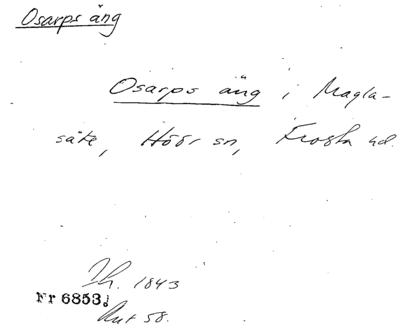 Osarps äng
Osarps äng i Magla-
säte, Höör sn, Frosta hd.
Lh. 1843
Nr 6853.
Ant 58.